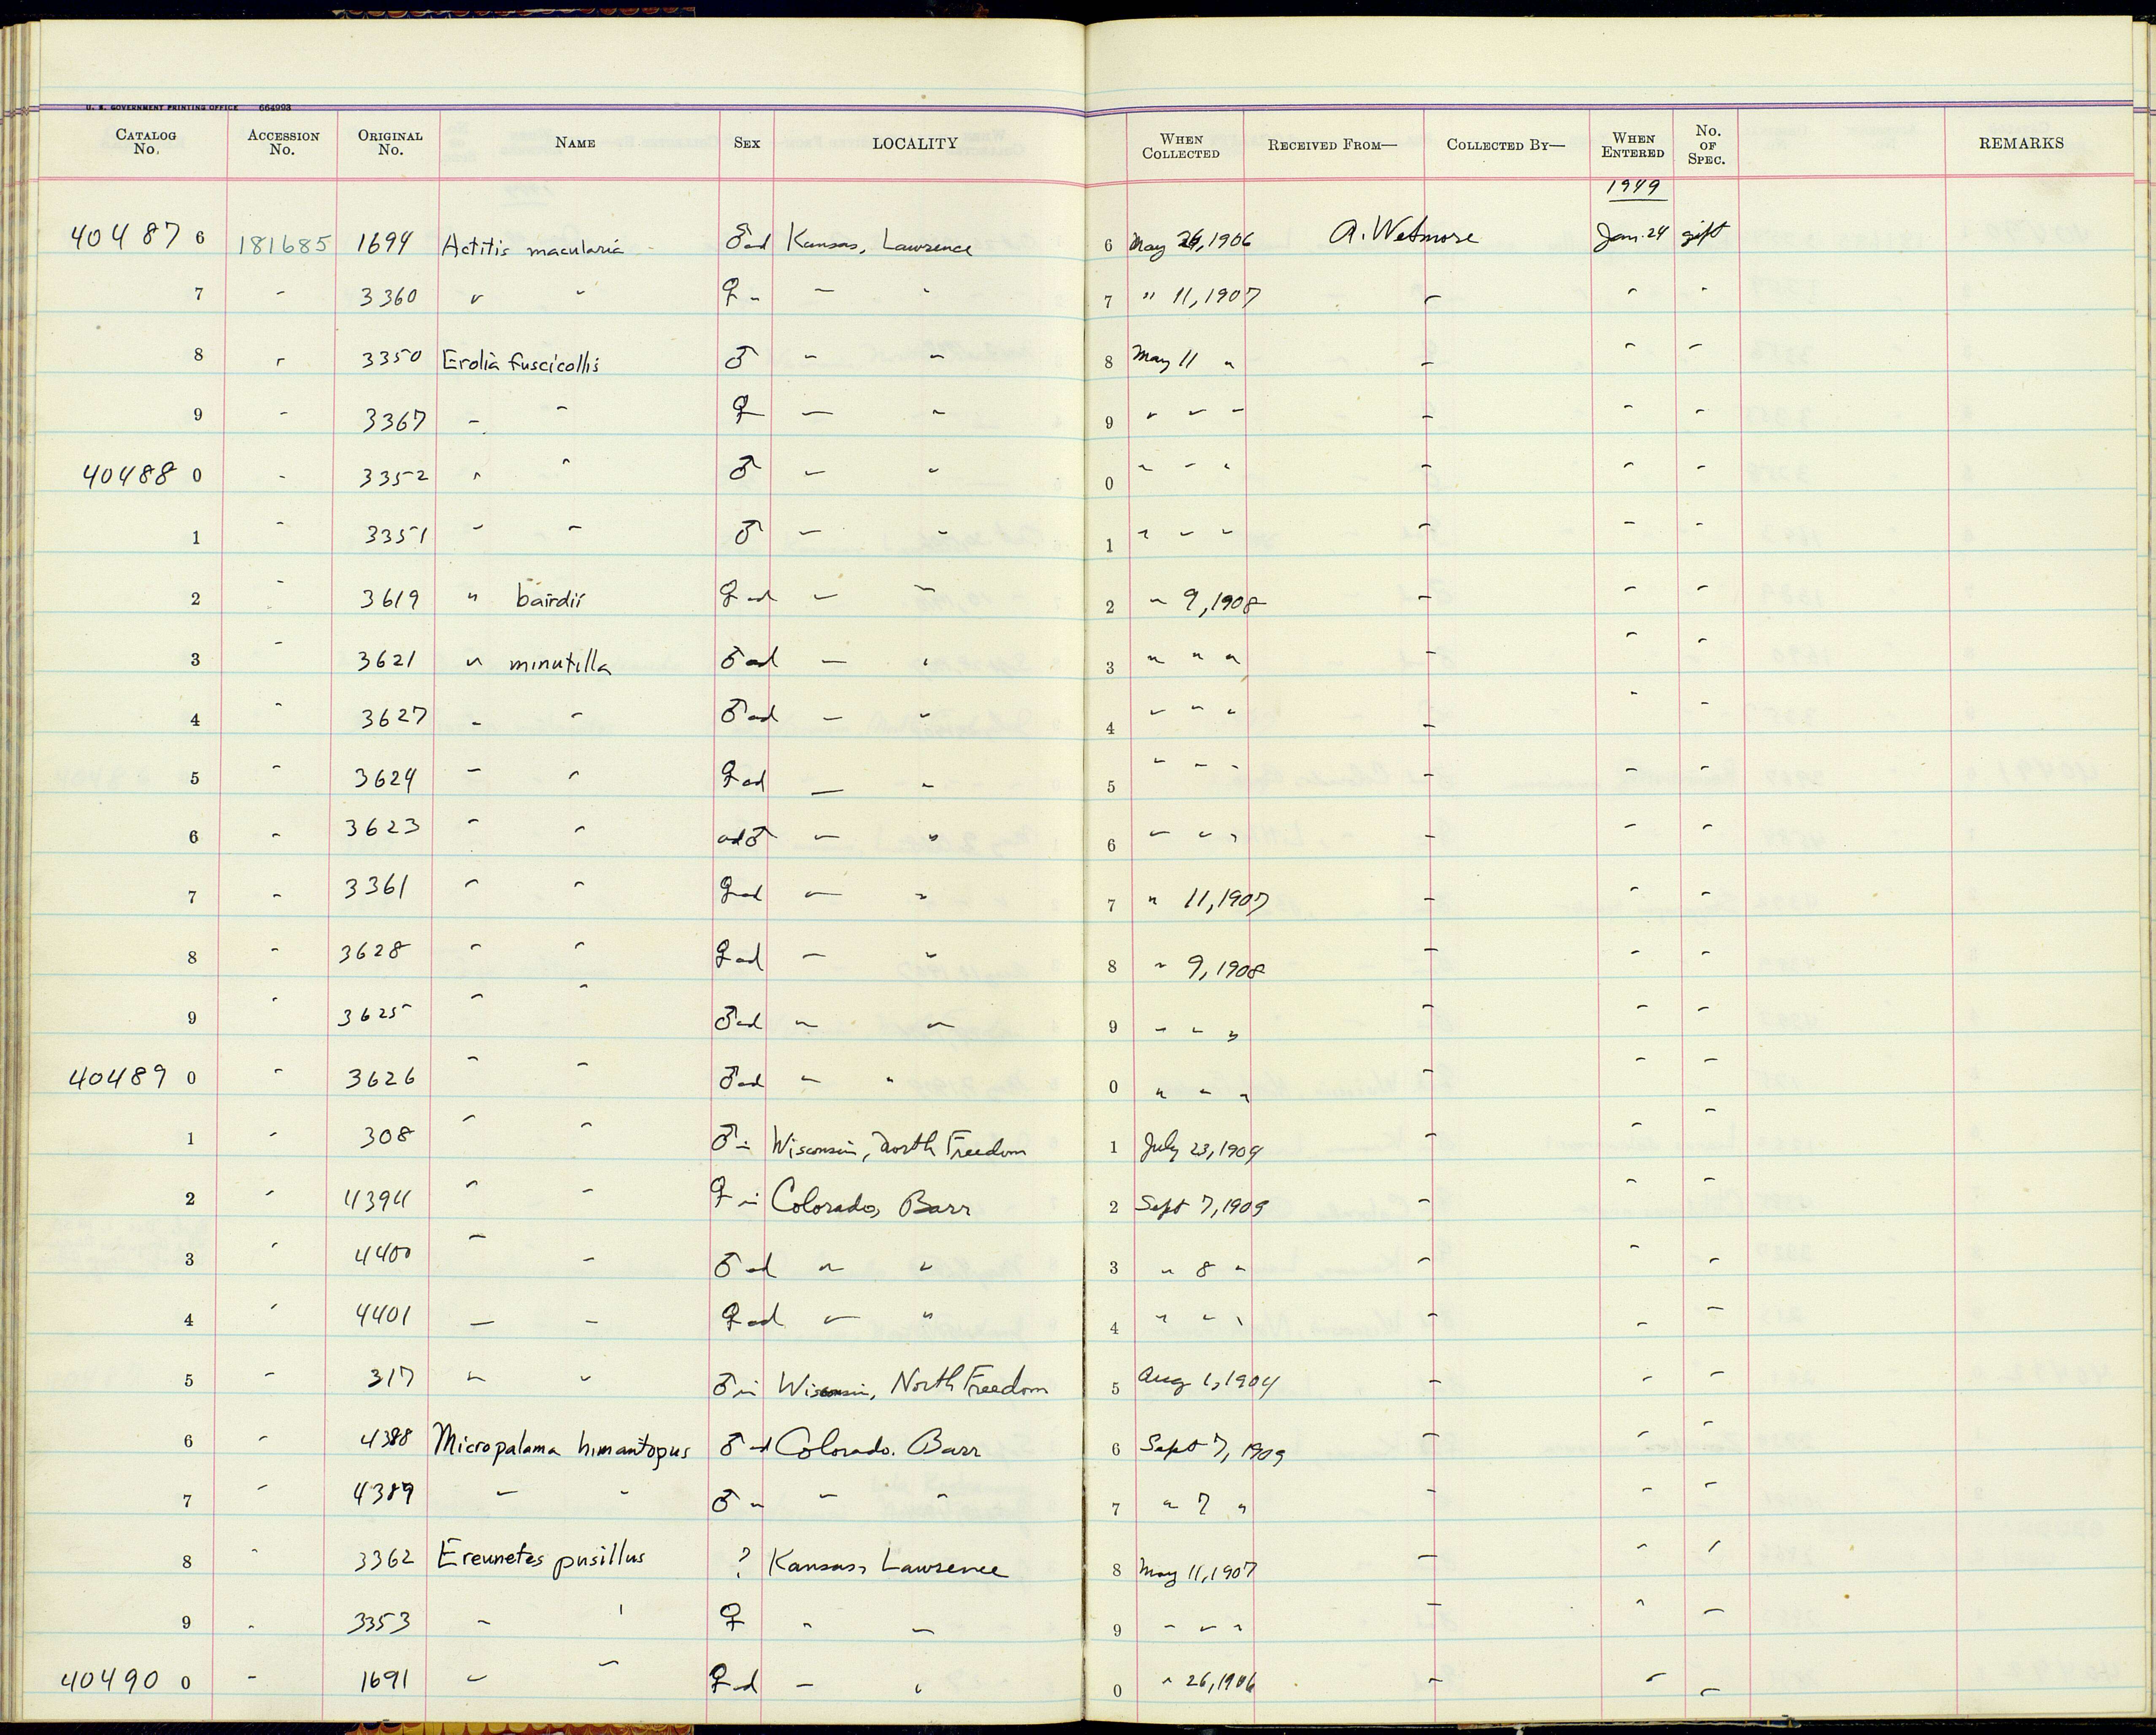 U. S. GOVERNMENT PRINTING OFFICE 664993
CATALOG No. ACCESSION No. ORIGINAL No. NAME SEX LOCALITY WHEN COLLECTED RECEIVED FROM— COLLECTED BY— WHEN ENTERED No. OF SPEC. REMARKS
1949
40487 6 181685 1694 Actitis macularia ♂ad Kansas, Lawrence 6 May 26, 1906 A. Wetmore Jan. 24 gift
7 " 3360 " " ♀ " " " 7 " 11, 1907 " " "
8 " 3350 Erolia fuscicollis ♂ " " 8 May 11 " " " "
9 " 3367 " " ♀ " " 9 " " " " " "
40488 0 " 3352 " " ♂ " " 0 " " " " " "
1 " 3351 " " ♂ " " 1 " " " " " "
2 " 3619 " bairdii ♀ad " " 2 " 9, 1908 " " "
3 " 3621 " minutilla ♂ad " " 3 " " " " " "
4 " 3627 " " ♂ad " " 4 " " " " " "
5 " 3624 " " ♀ad " " 5 " " " " " "
6 " 3623 " " ad♂ " " 6 " " " " " "
7 " 3361 " " ♀ad " " 7 " 11, 1907 " " "
8 " 3628 " " ♀ad " " 8 " 9, 1908 " " "
9 " 3625 " " ♂ad " " 9 " " " " " "
40489 0 " 3626 " " ♂ad " " 0 " " " " " "
1 " 308 " " ♂im Wisconsin, North Freedom 1 July 23, 1904 " " "
2 " 4394 " " ♀im Colorado, Barr 2 Sept 7, 1909 " " "
3 " 4400 " " ♂ad " " 3 " 8 " " " "
4 " 4401 " " ♀ad " " 4 " " " " " "
5 " 317 " " ♂im Wisconsin, North Freedom 5 Aug 1, 1904 " " "
6 " 4388 Micropalama himantopus ♂ad Colorado. Barr 6 Sept 7, 1909 " " "
7 " 4389 " " ♂ " " " 7 " 7 " " " "
8 " 3362 Ereunetes pusillus ? Kansas, Lawrence 8 May 11, 1907 " " "
9 " 3353 " " ♀ " " 9 " " " " " "
40490 0 " 1691 " " ♀ad " " 0 " 26, 1906 " " "